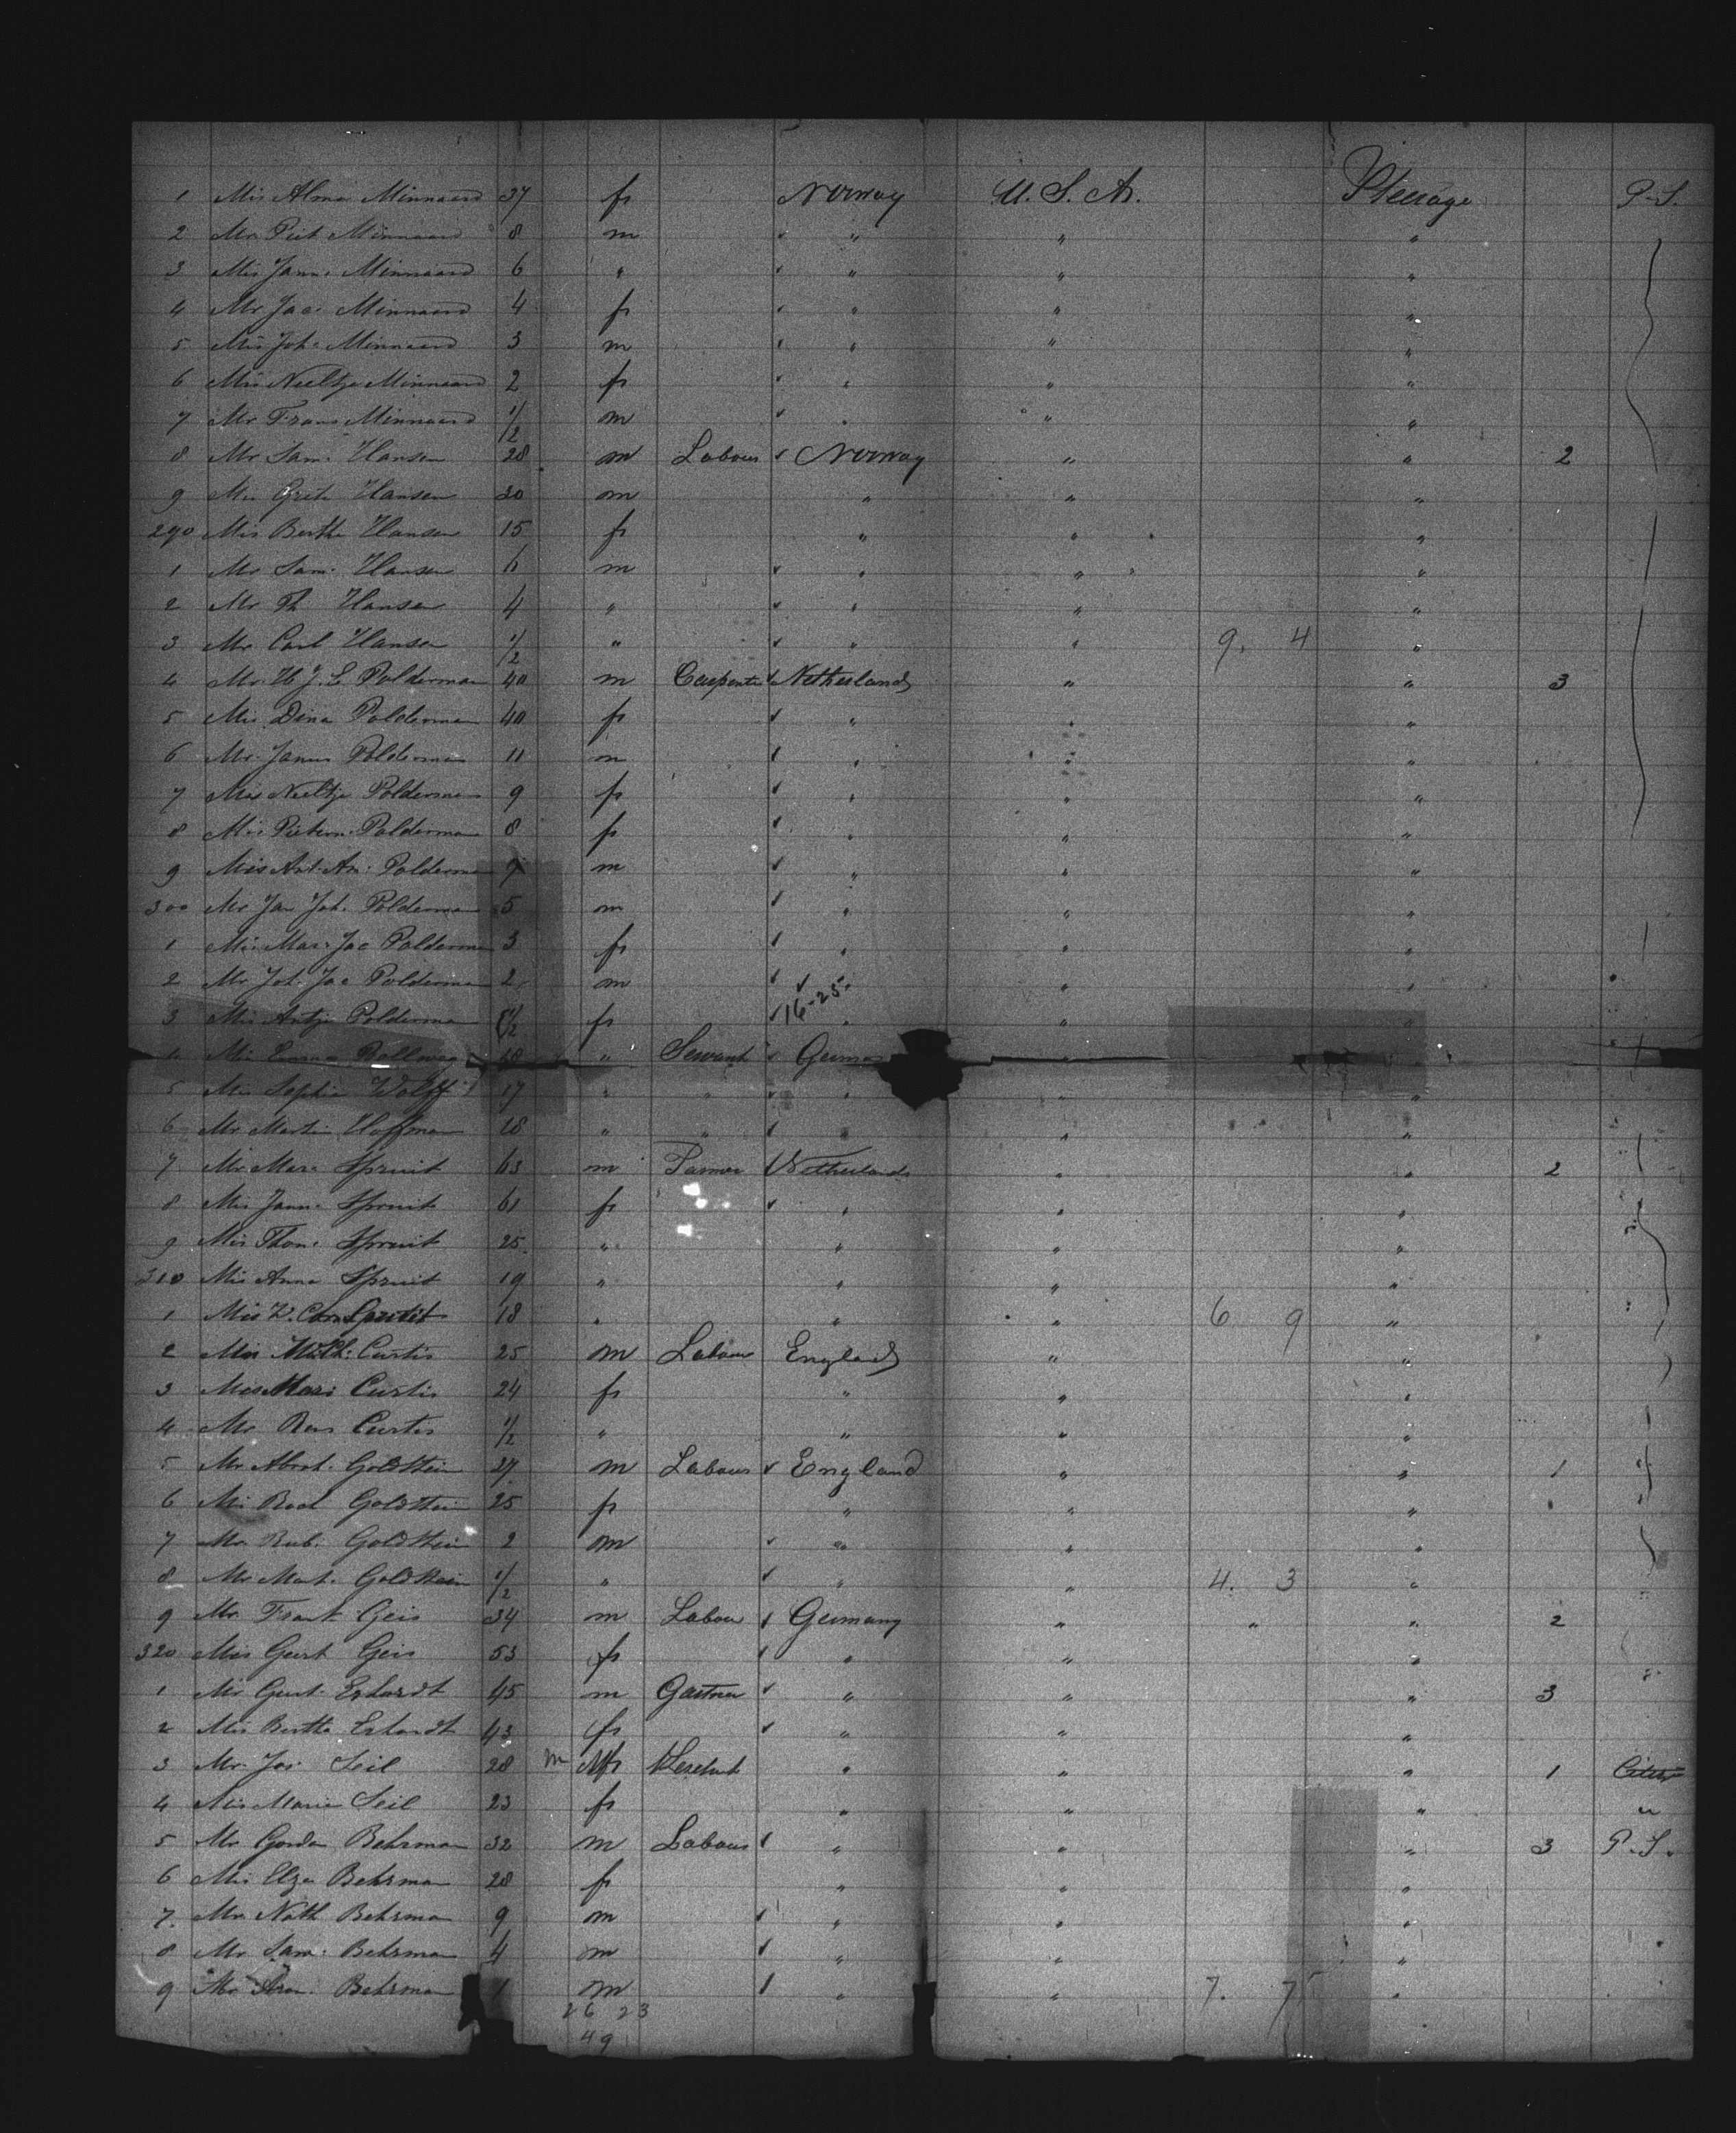 1 Mis Alma Minnaard 37 f Norway U. S. A. Steerage P. S.
2 Mr Piet Minnaard 8 m " " "
3 Mis Jann. Minnaard 6 " " " "
4 Mr Jac. Minnaard 4 f " " "
5 Mis Joh. Minnaard 3 m " " "
6 Mis Neeltje Minnaard 2 f " " "
7 Mr Frans Minnaard 1/2 m " " "
8 Mr Sam. Hansen 28 m Labour Norway " " 2
9 Mis Grete Hansen 30 m " " "
290 Mis Bertha Hansen 15 f " " "
1 Mr Sam. Hansen 6 m " " "
2 Mr Th Hansen 4 " " " "
3 Mr Carl Hansen 1/2 " " " 9. 4 "
4 Mr. H J. L Polderman 40 m Carpenter Netherlands " " 3
5 Mis Dina Polderman 40 f " " "
6 Mr. Janus Polderman 11 m " " "
7 Mis Neeltje Polderman 9 f " " "
8 Mis Pietern. Polderman 8 f " " "
9 Mis Ant. An. Polderman 7 m " " "
300 Mr Jan Joh. Polderman 5 m " " "
1 Mis Mar. Jac Polderman 3 f " " "
2 Mr Joh. Jac Polderman 2 m " " "
3 Mis Antje Polderman 1/2 f 16-25 " " "
4 Mis Emma 18 " Servant German "
5 Mis Sophie Wolff 17 " " " " "
6 Mr Martin Hoffman 18 " " " " "
7 Mr Mar. Spruit 63 m Farmer Netherlands " " 2
8 Mis Jann. Spruit 61 f " " "
9 Mis Thon. Spruit 25 " " " "
310 Mis Anna Spruit 19 " " " "
1 Mis Corn Spruit 18 " " " 6 9 "
2 Mis Curtis 25 m Labour England " "
3 Mis Mari Curtis 24 f " " "
4 Mr Curtis 1/2 " " " "
5 Mr Abrah. Goldstein 27 m Labour England " " 1
6 Mis Goldstein 25 f " " "
7 Mr Rub. Goldstein 2 m " " "
8 Mr Goldstein 1/2 " " " 4. 3 "
9 Mr. Frank Geis 34 m Labour Germany " " " 2
320 Mis Geis 53 f " " "
1 Mr Gust. Erhardt 45 m Gartner " " " 3
2 Mis Bertha Erhardt 43 f " " "
3 Mr. Jos Seil 28 m " " " 1
4 Mis Marie Seil 23 f " " " "
5 Mr Gordon Behrman 32 m Labour " " " 3 P. S.
6 Mis Elza Behrman 28 f " " "
7. Mr Nath Behrman 9 m " " "
8 Mr Sam. Behrman 4 m " " "
9 Mr Behrman 1 m " " 7. 7 "
26 23
49